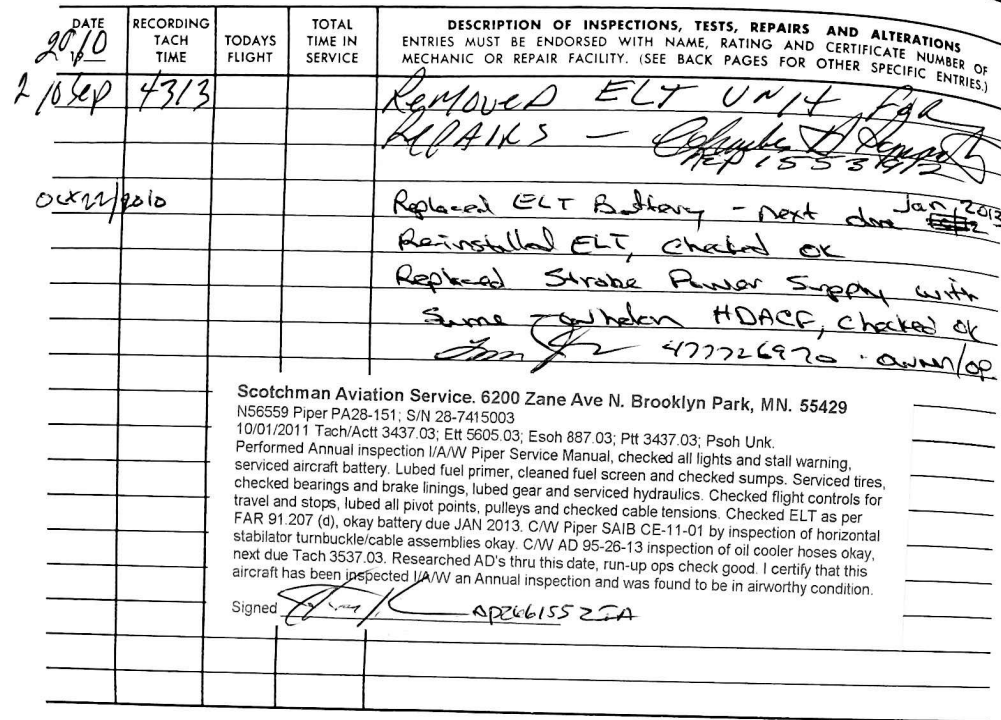 DATE
2010
RECORDING TACH TIME
TODAYS FLIGHT
TOTAL TIME IN SERVICE
DESCRIPTION OF INSPECTIONS, TESTS, REPAIRS AND ALTERATIONS
ENTRIES MUST BE ENDORSED WITH NAME, RATING AND CERTIFICATE NUMBER OF
MECHANIC OR REPAIR FACILITY. (SEE BACK PAGES FOR OTHER SPECIFIC ENTRIES.)
Sep 4313 REMOVED ELT UNIT FOR
REPAIRS –
A&P
Oct 22/2010 Replaced ELT Battery - next due Jan, 2013
Reinstalled ELT, checked ok
Replaced Strobe Power Supply with
Same - Whelen HDACF, checked ok
477726970 - owner/op
Scotchman Aviation Service. 6200 Zane Ave N. Brooklyn Park, MN. 55429
N56559 Piper PA28-151; S/N 28-7415003
10/01/2011 Tach/Actt 3437.03; Ett 5605.03; Esoh 887.03; Ptt 3437.03; Psoh Unk.
Performed Annual inspection I/A/W Piper Service Manual, checked all lights and stall warning,
serviced aircraft battery. Lubed fuel primer, cleaned fuel screen and checked sumps. Serviced tires,
checked bearings and brake linings, lubed gear and serviced hydraulics. Checked flight controls for
travel and stops, lubed all pivot points, pulleys and checked cable tensions. Checked ELT as per
FAR 91.207 (d), okay battery due JAN 2013. C/W Piper SAIB CE-11-01 by inspection of horizontal
stabilator turnbuckle/cable assemblies okay. C/W AD 95-26-13 inspection of oil cooler hoses okay,
next due Tach 3537.03. Researched AD's thru this date, run-up ops check good. I certify that this
aircraft has been inspected I/A/W an Annual inspection and was found to be in airworthy condition.
Signed